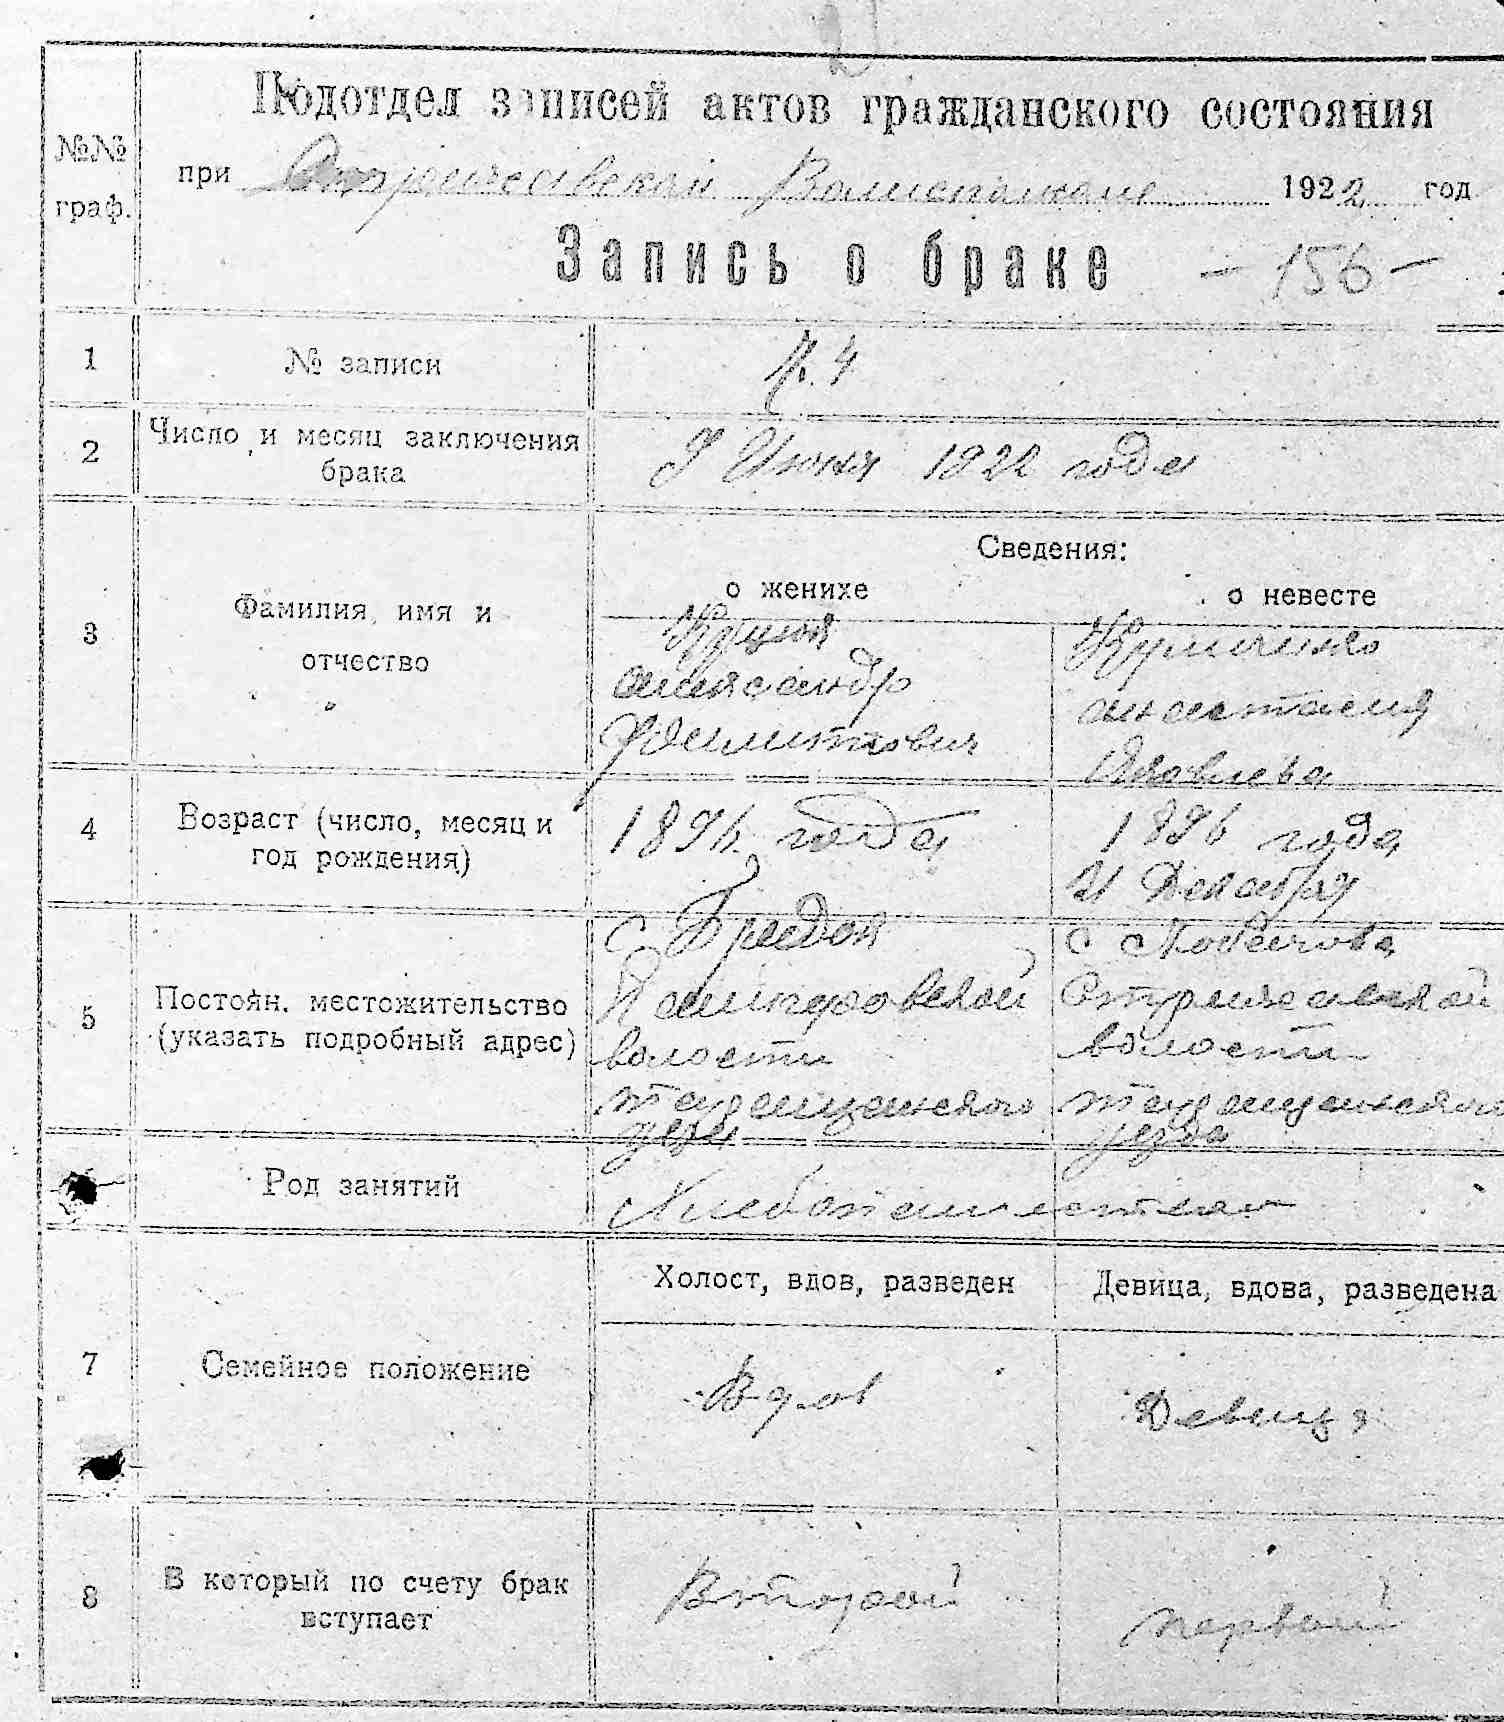 Подотдел записей актов гражданского состояния
№№ граф.
при Волисполкоме 1922 год
Запись о браке - 156 -
1 № записи 4
2 Число и месяц заключения брака 9 Июня 1922 года
Сведения:
о женихе о невесте
3 Фамилия, имя и отчество
Куцый
александр
Филиппович
Куличенко
анастасия
Яковлева
4 Возраст (число, месяц и год рождения)
года
1896 года
21 Декабря
5 Постоян. местожительство (указать подробный адрес)
с
волости
уезда
с
волости
уезда
Род занятий
Хлебопашество
7 Семейное положение
Холост, вдов, разведен
Девица, вдова, разведена
Вдов
Девица
8 В который по счету брак вступает
Второй
первый